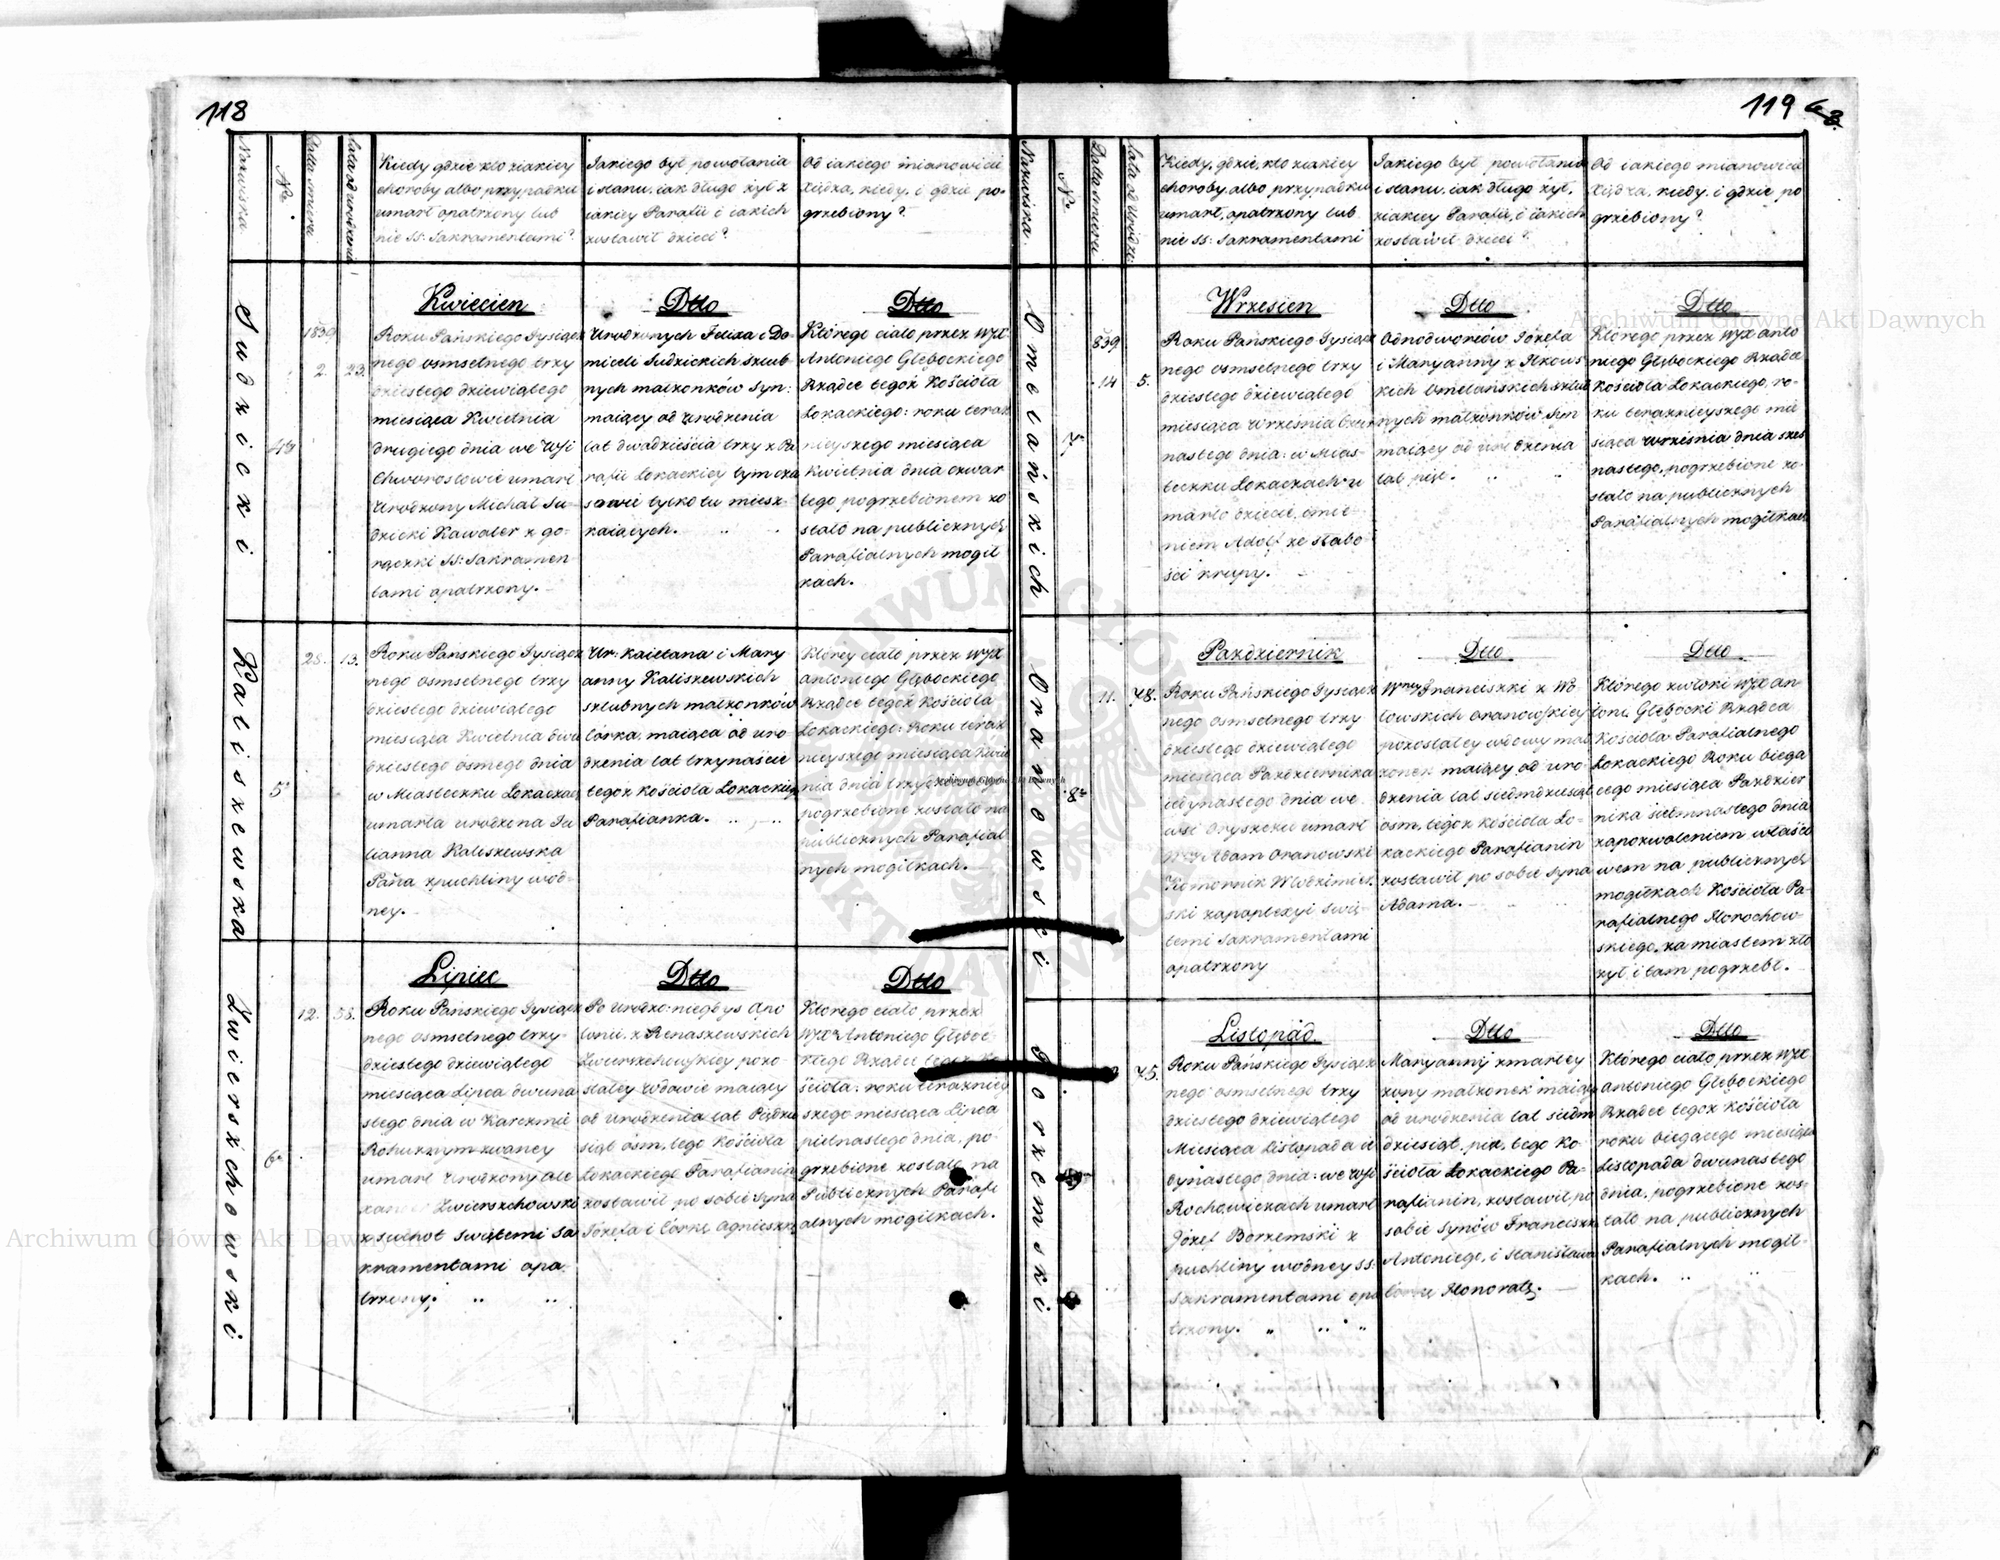 118
Nazwiska
No
Datta śmierci
Lata od urodzenia
Kiedy gdzie kto ziakiey
choroby albo przypadku
umarł opatrzony lub
nie SS: Sakramentami?
Jakiego był powołania
i stanu, iak długo żył z
iakiey Parafii i iakich
zostawił dzieci?
Od iakiego mianowicie
Xiędza, kiedy, i gdzie po-
grzebiony?
Sudzicki
1839
2
23.
Kwiecien
Roku Pańskiego Tysiącz
nego osmsetnego trzy
dziestego dziewiątego
miesiąca Kwietnia
drugiego dnia we Wsi
Chworostowie umarł
Urodzony Michał Su-
dzicki Kawaler z go-
rączki SS: Sakramen
tami opatrzony.
Dtto
Urodzonych Felixa i Do-
miceli Sudzickich szlub
nych małżonków syn:
maiący od urodzenia
lat dwadzieścia trzy z Pa
rafii Łokackiey tym cza
sowie tylko tu miesz-
kaiących.
Dtto
Którego ciało przez WJX
Antoniego Głębockiego
Rządce tegoż Kościoła
Łokackiego: roku teraz
nieyszego miesiąca
Kwietnia dnia czwar
tego pogrzebionem zo
stało na publicznych
Parafialnych mogił
kach.
Kaliszewska
5
28.
13.
Roku Pańskiego Tysiącz
nego osmsetnego trzy
dziestego dziewiątego
miesiąca Kwietnia dwu
dziestego osmego dnia
w Miasteczku Łokaczach
umarła urodzona Ju
lianna Kaliszewska
Panna z puchliny wod-
ney.
Ur: Kaietana i Mary
anny Kaliszewskich
szlubnych małżonków
córka, maiąca od uro
dzenia lat trzynaście
tegoż Kościoła Łokackiego
Parafianka.
Którey ciało przez WJX
Antoniego Głębockiego
Rządce tegoż Kościoła
Łokackiego: Roku teraz
nieyszego miesiąca Kwie
nia dnia
pogrzebione zostało na
publicznych Parafial
nych mogiłkach.
Zwierzchowski
6
12.
58.
Lipiec
Roku Pańskiego Tysiącz
nego osmsetnego trzy-
dziestego dziewiątego
miesiąca Lipca dwuna
stego dnia w Karczmie
zwaney
umarł Urodzony Ale
xander Zwierzchowski
z suchot Swiętemi Sa
kramentami opa
trzony.
Dtto
Po urodzo: niegdys
z Renaszewskich
Zwierzchowskiey pozo-
stałey wdowie maiący
od urodzenia lat Pięćdzie
siąt ośm, tego Kościoła
Łokackiego Parafianin
zostawił po sobie syna
Józefa i Córkę Agnieszkę
Dtto
Którego ciało przez
WJX Antoniego Głęboc-
kiego Rządce tegoż Ko-
ścioła: roku teraznieÿ
szego miesiąca Lipca
pietnastego dnia, po-
grzebione zostało na
Publicznych Parafi
alnych mogiłkach.
119
Nazwiska
No
Datta śmierci
Lata od urodze:
Kiedy, gdzie, kto ziakiey
choroby, albo przypadku
umarł, opatrzony lub
nie SS: Sakramentami
Jakiego był powołania
i stanu, iak długo żył,
ziakiey Parafii, i iakich
zostawił dzieci?
Od iakiego mianowicie
Xiędza, kiedy, i gdzie po
grzebiony?
Omelańskich
7
839
14
5.
Wrzesien
Roku Pańskiego Tysiącz
nego osmsetnego trzy
dziestego dziewiątego
miesiąca Września Czter
nastego dnia: w Mias-
teczku Łokaczach u
marło dziecie, imie-
niem Adolf ze słabo
ści krupy.
Dtto
Odnodworców Józefa
i Maryanny z Ilkows
kich Omelańskich szlub
nych małżonków syn
maiący od urodzenia
lat pięć.
Dtto
Którego przez WJX Anto
niego Głębockiego Rządce
Kościoła Łokackiego, ro-
ku teraznieyszego mie
siąca września dnia szes
nastego, pogrzebione zo-
stało na publicznych
Parafialnych mogiłkach
Oranowski
8
11.
78.
Pazdziernik
Roku Pańskiego Tysiącz
nego osmsetnego trzy
dziestego dziewiątego
miesiąca Pazdziernika
iedynastego dnia we
wsi Oryszczu umarł
Adam Oranowski
Komornik Włodzimier
ski zapoplexyi Swię-
temi Sakramentami
opatrzony
Dtto
Franciszki z Wo
łowskich Oranowskiey
pozostałey wdowy mał
żonek maiący od uro-
dzenia lat siedmdziesiąt
osm, tegoż Kościoła Ło-
kackiego Parafianin
zostawił po sobie syna
Adama.
Dtto
Którego zwłoki WJX An
toni Głębocki Rządca
Kościoła Parafialnego
Łokackiego Roku bieżą
cego miesiąca Pazdzier
nika siedmnastego dnia
zapozwoleniem właści
wem na publicznych
mogiłkach Kościoła Pa-
rafialnego Horochow-
skiego, za miastem zło
żył i tam pogrzebł.
Borzemski
75.
Listopad
Roku Pańskiego Tysiącz
nego osmsetnego trzy
dziestego dziewiątego
Miesiąca Listopada ie
dynastego dnia: we Wsi
Kochowiczach umarł
Józef Borzemski z
puchliny wodney SS:
Sakramentami opa
trzony.
Dtto
Maryanny zmarłey
żony małżonek maiąc
od urodzenia lat siedm
dziesiąt, pięć, tego Ko-
ścioła Łokackiego Pa-
rafianin, zostawił po
sobie synów Franciszka
Antoniego, i Stanisława
córkę Honoratę.
Dtto
Którego ciało przez WJX
Antoniego Głębockiego
Rządce tegoż Kościoła
roku biegącego miesiąca
Listopada dwunastego
dnia, pogrzebione zos-
tało na publicznych
Parafialnych mogił-
kach.
Archiwum Główne Akt Dawnych
Archiwum Główne Akt Dawnych
Archiwum Główne Akt Dawnych